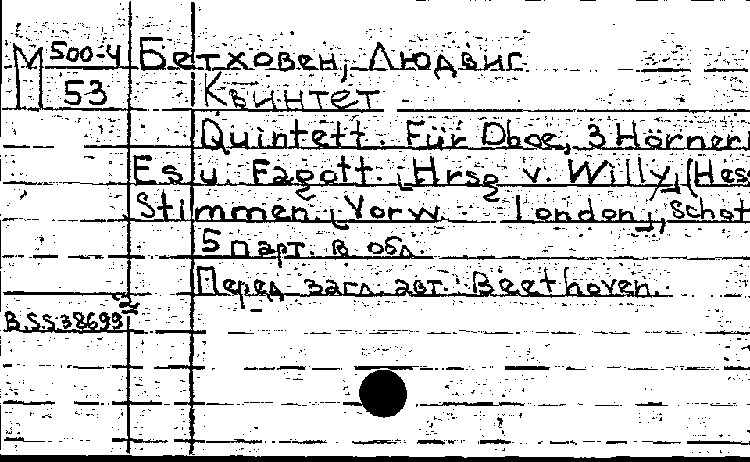 М 500-4 Бетховен, Людвиг
53 Квинтет
Quintett. Für Oboe, 3 Hörner
Es u. Fagott. Hrsg v. Willy (Hess
Stimmen. Vorw. London, Schot
5 парт. в обл.
Перед загл. авт.: Beethoven.
B.S.S 38699